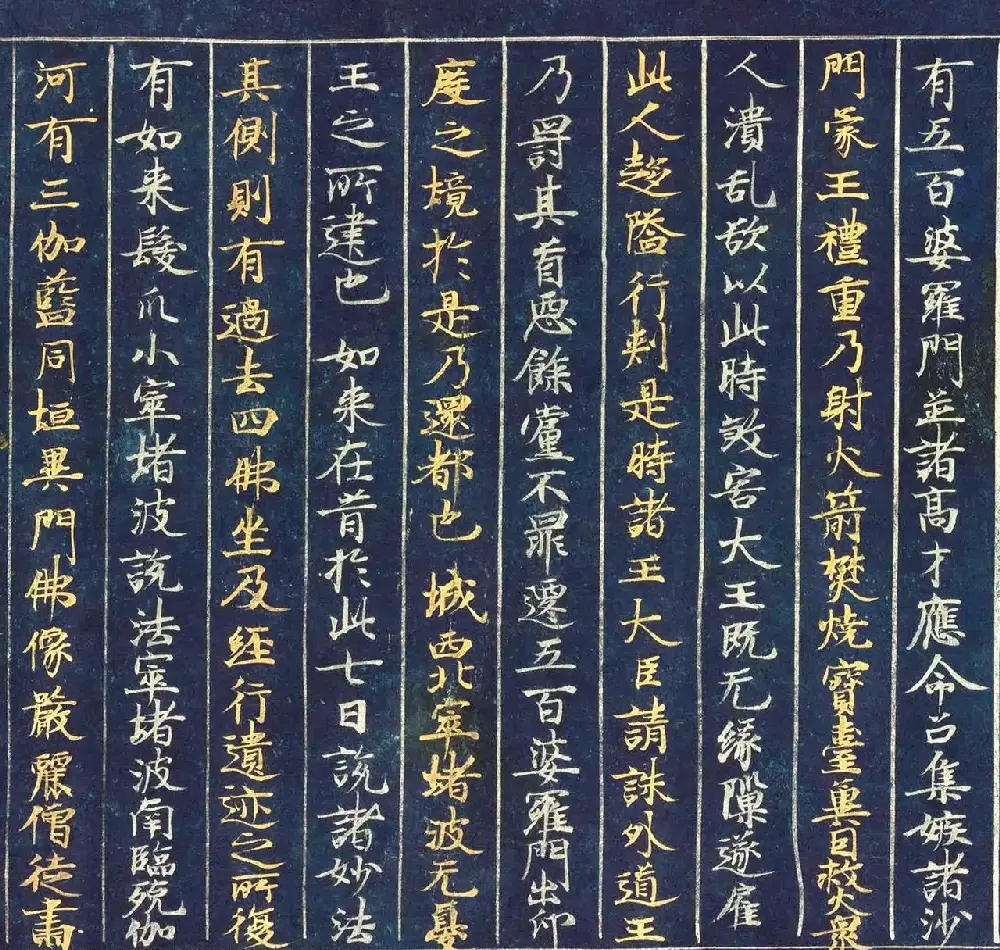 有五百婆羅門並諸髙才應命召集嫉諸沙
門蒙王禮重乃射火箭焚燒寳臺冀因救火衆
人潰乱欲以此時煞害大王既无緣隟遂雇
此人趍隘行刾是時諸王大臣請誅外道王
乃罸其首惡餘黨不罪遷五百婆羅門出印
度之境於是乃還都也 城西北窣堵波无憂
王之所建也 如来在昔於此七日說諸妙法
其側則有過去四佛坐及経行遺迹之所復
有如来髮爪小窣堵波說法窣堵波南臨殑伽
河有三伽藍同垣異門佛像嚴麗僧徒肅